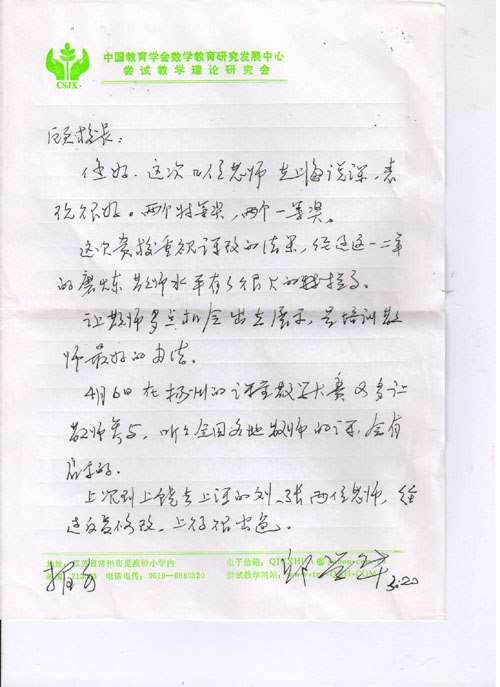 中国教育学会数学教育研究发展中心
尝试教学理论研究会
CSJX
顾校长:
您好.这次几位老师去上海说课,表
现很好。两个特等奖,两个一等奖。
这次贵校重视课改的结果,经过这一二年
的磨炼教师水平有了很大的提高。
让教师多点机会出去展示,是培训教
师最好的办法。
4月6日在扬州的课堂教学大赛可多让
教师参与,听听全国各地教师的课,会有
启发的。
上次到上饶去上课的刘、张两位老师,经
过反复修改,上得很出色。
地址:江苏省常州市觅渡桥小学内
电子信箱:
电话电传:0519—6680320
尝试教学网站:
邱学华
3.20